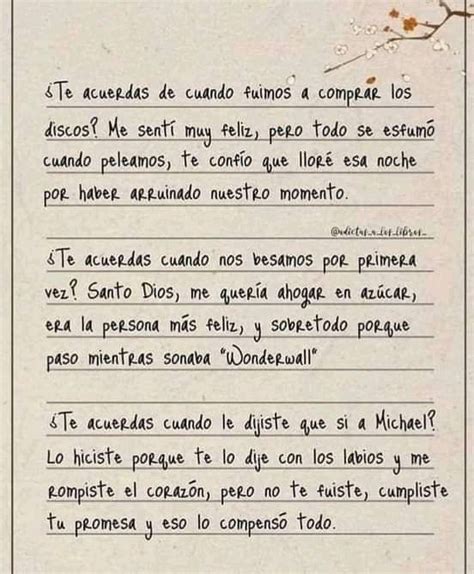 ¿Te acuerdas de cuando fuimos a comprar los
discos? Me sentí muy feliz, pero todo se esfumó
cuando peleamos, te confío que lloré esa noche
por haber arruinado nuestro momento.
@adictas_a_los_libros_
¿Te acuerdas cuando nos besamos por primera
vez? Santo Dios, me quería ahogar en azúcar,
era la persona más feliz, y sobretodo porque
paso mientras sonaba "Wonderwall"
¿Te acuerdas cuando le dijiste que si a Michael?
Lo hiciste porque te lo dije con los labios y me
rompiste el corazón, pero no te fuiste, cumpliste
tu promesa y eso lo compensó todo.